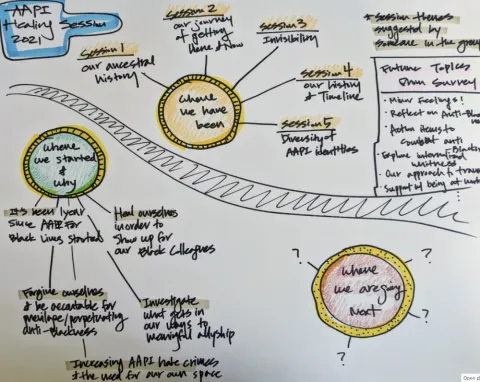 AAPI
Healing Session
2021
Session 1
our ancestral
history
Session 2
our journey
of getting
Here & Now
Session 3
Invisibility
Session 4
our history
& Timeline
Session 5
Diversity of
AAPI identities
where
we have
been
Session themes
suggested by
someone in the group
Future Topics
from Survey
Minor Feelings!
Reflect on Anti-Bla
Action items to
combat anti
Blackn
Explore internalized
whiteness
Our approach to trau
Support of being at
where
we started
& why
It's been 1 year
since AAPI for
Black Lives started
Heal ourselves
in order to
show up for
our Black Colleagues
Forgive ourselves
& be accountable for
privilege/perpetuating
anti-blackness
Investigate
what gets in
our ways to
meaningful allyship
Increasing AAPI hate crimes
& the need for our own space
where
we are going
Next
?
?
?
?
Open